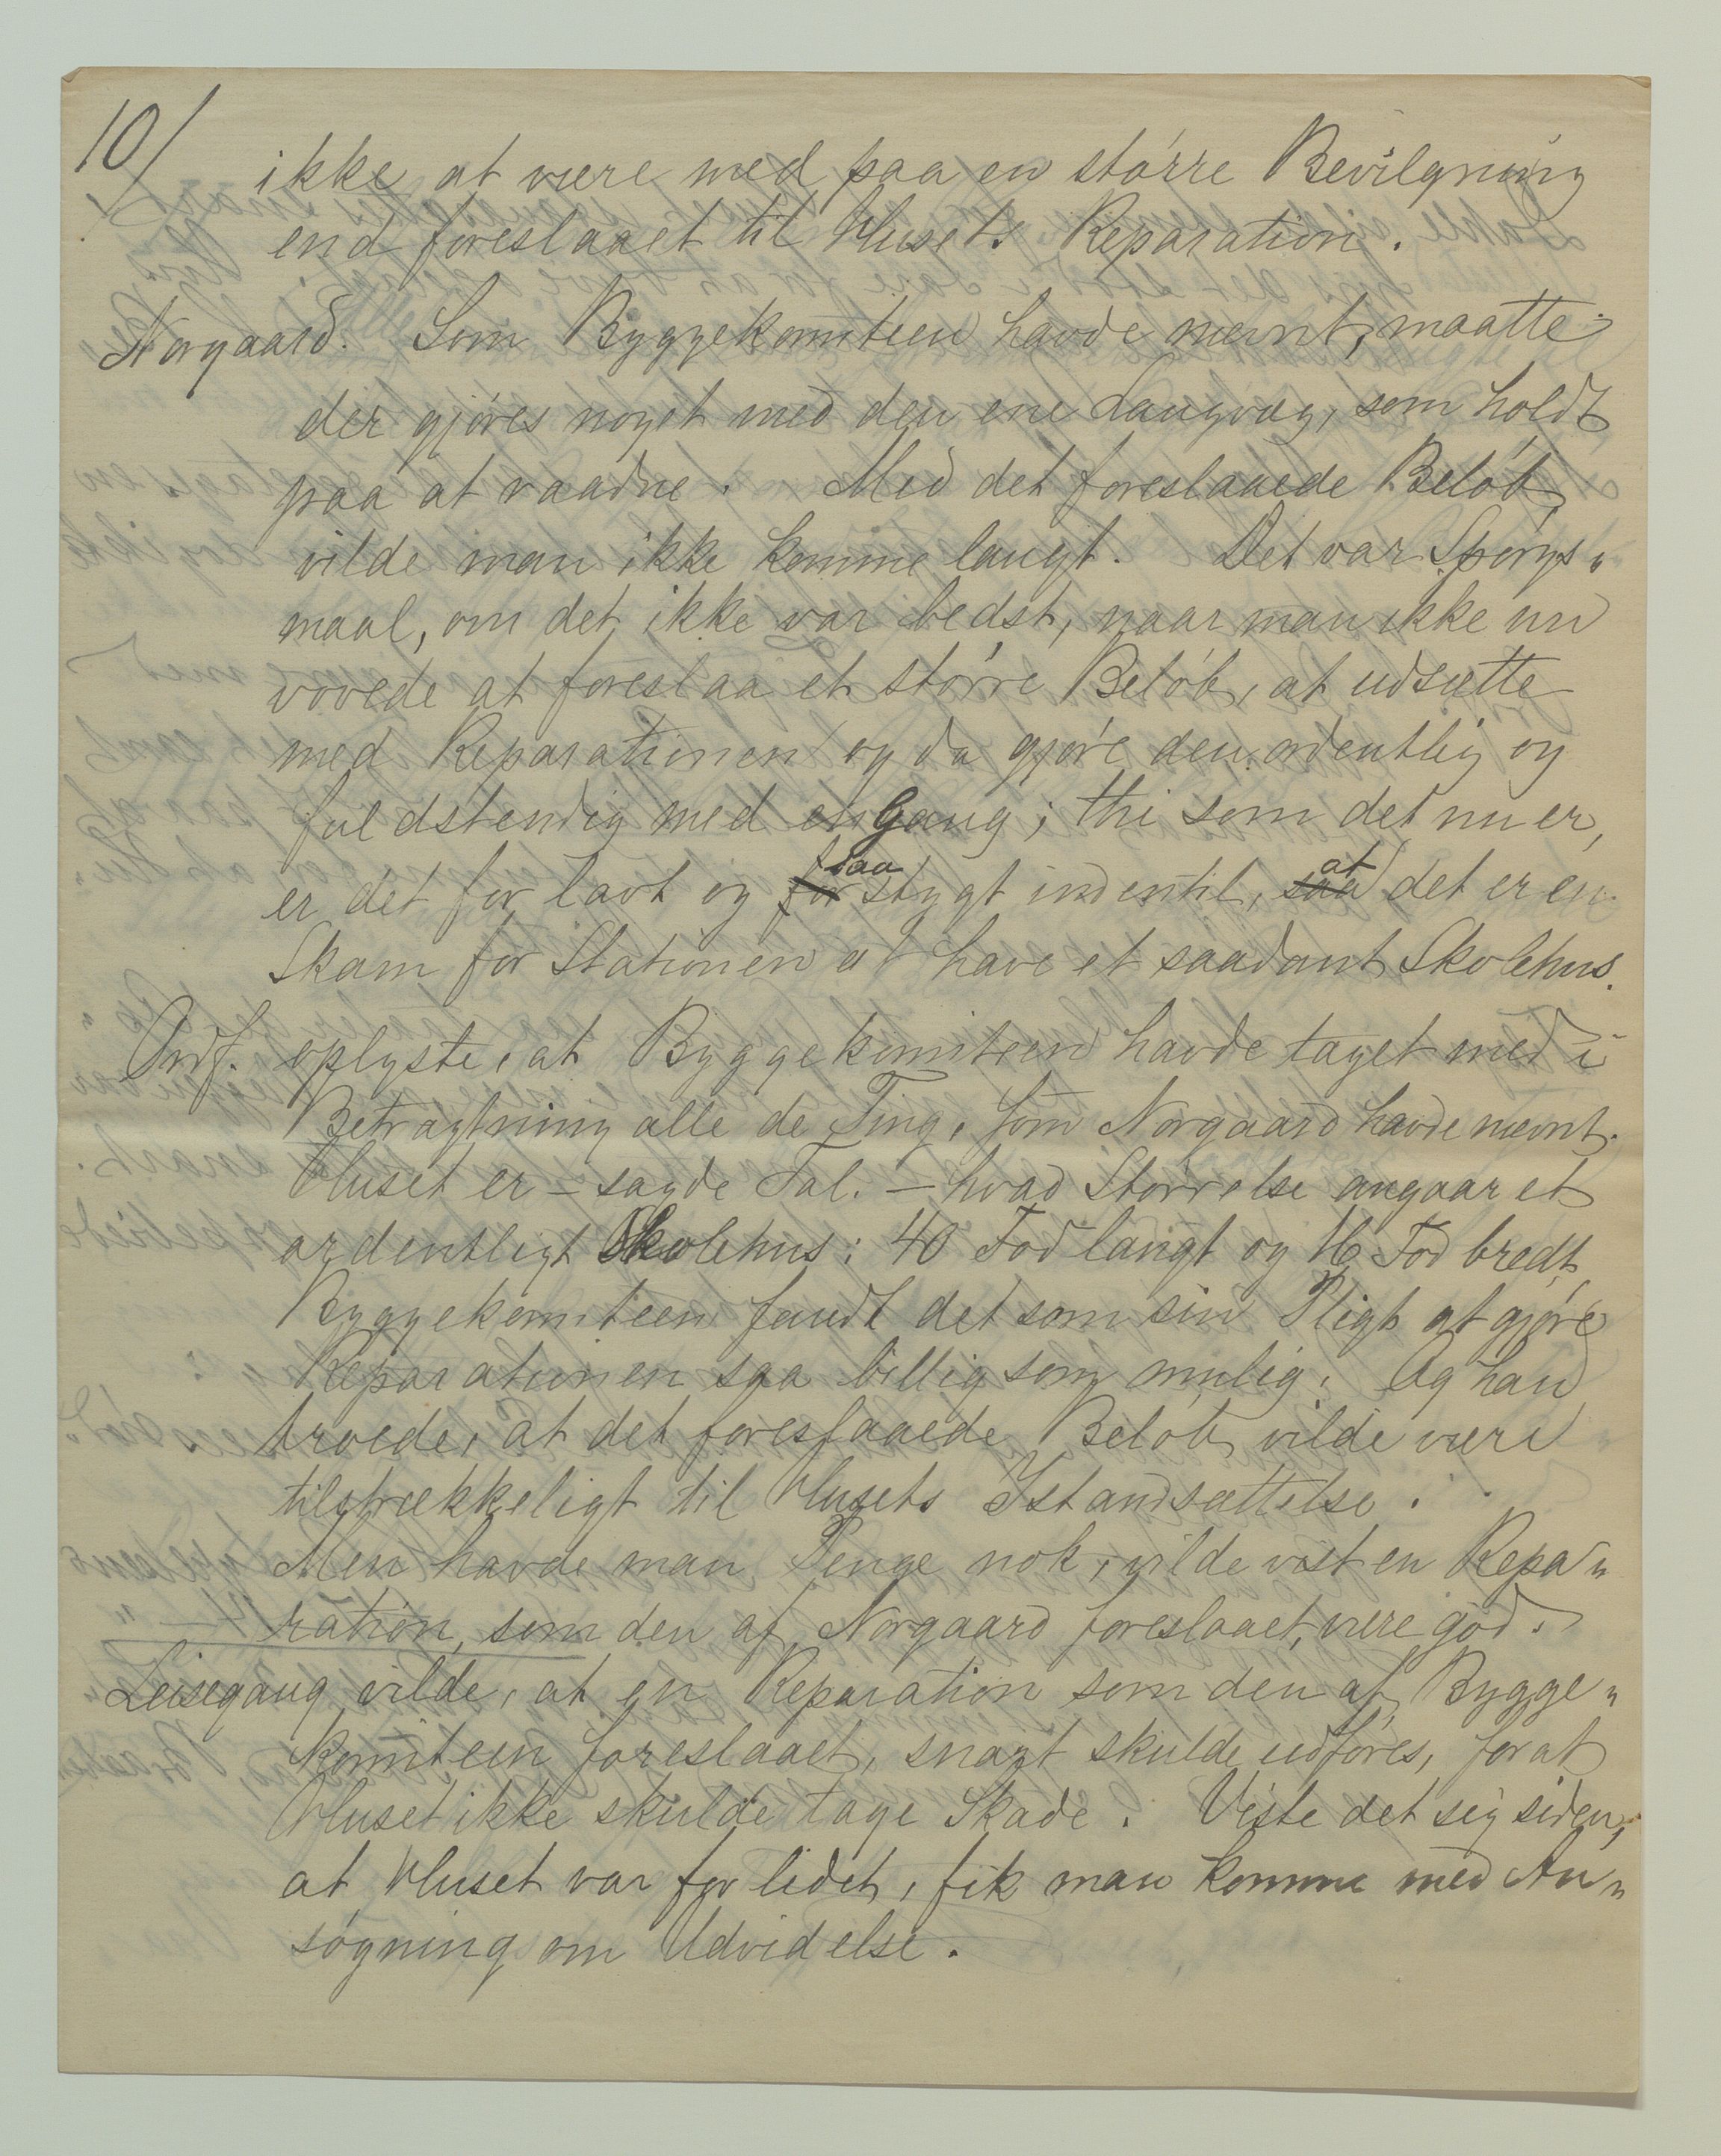 10/
ikke at være med paa en større Bevilgning
end foreslaaet til Husets Reparation.
Norgaard. Som Byggekomiteen havde nævnt, maatte
der gjøres noget med den ene Langvæg, som holdt
paa at raadne. Med det foreslaaede Beløb
vilde man ikke komme langt. Det var Spørgs„
maal, om det ikke var bedst, naar man ikke nu
vovede at foreslaa et større Beløb, at udsætte
med Reparationen og da gjøre den ordentlig og
fuldstendig med en Gang; thi som det nu er,
er det for lavt og for saa stygt indentil, saa at det er en
Skam for Stationen at have et saadant Skolehus.
Ordf. oplyste, at Byggekomiteen havde taget med i
Betragtning alle de Ting, som Norgaard havde nævnt.
Huset er – sagde Tal. – hvad Størrelse angaar et
ordentligt Skolehus: 40 Fod langt og 16 Fod bredt.
Byggekomiteen fandt det som sin Pligt at gjøre
Reparationen saa billig som mulig. Og han
troede, at det foreslaaede Beløb vilde være
tilstrækkeligt til Husets Istandsættelse.
Men havde man Penge nok, vilde vist en Repa„
ration, som den af Norgaard foreslaaet, være god.
Leisegang vilde, at en Reparation som den af Bygge„
komiteen foreslaaet, snart skulde udføres, for at
Huset ikke skulde tage Skade. Viste det sig siden,
at Huset var for lidet, fik man komme med An„
søgning om Udvidelse.